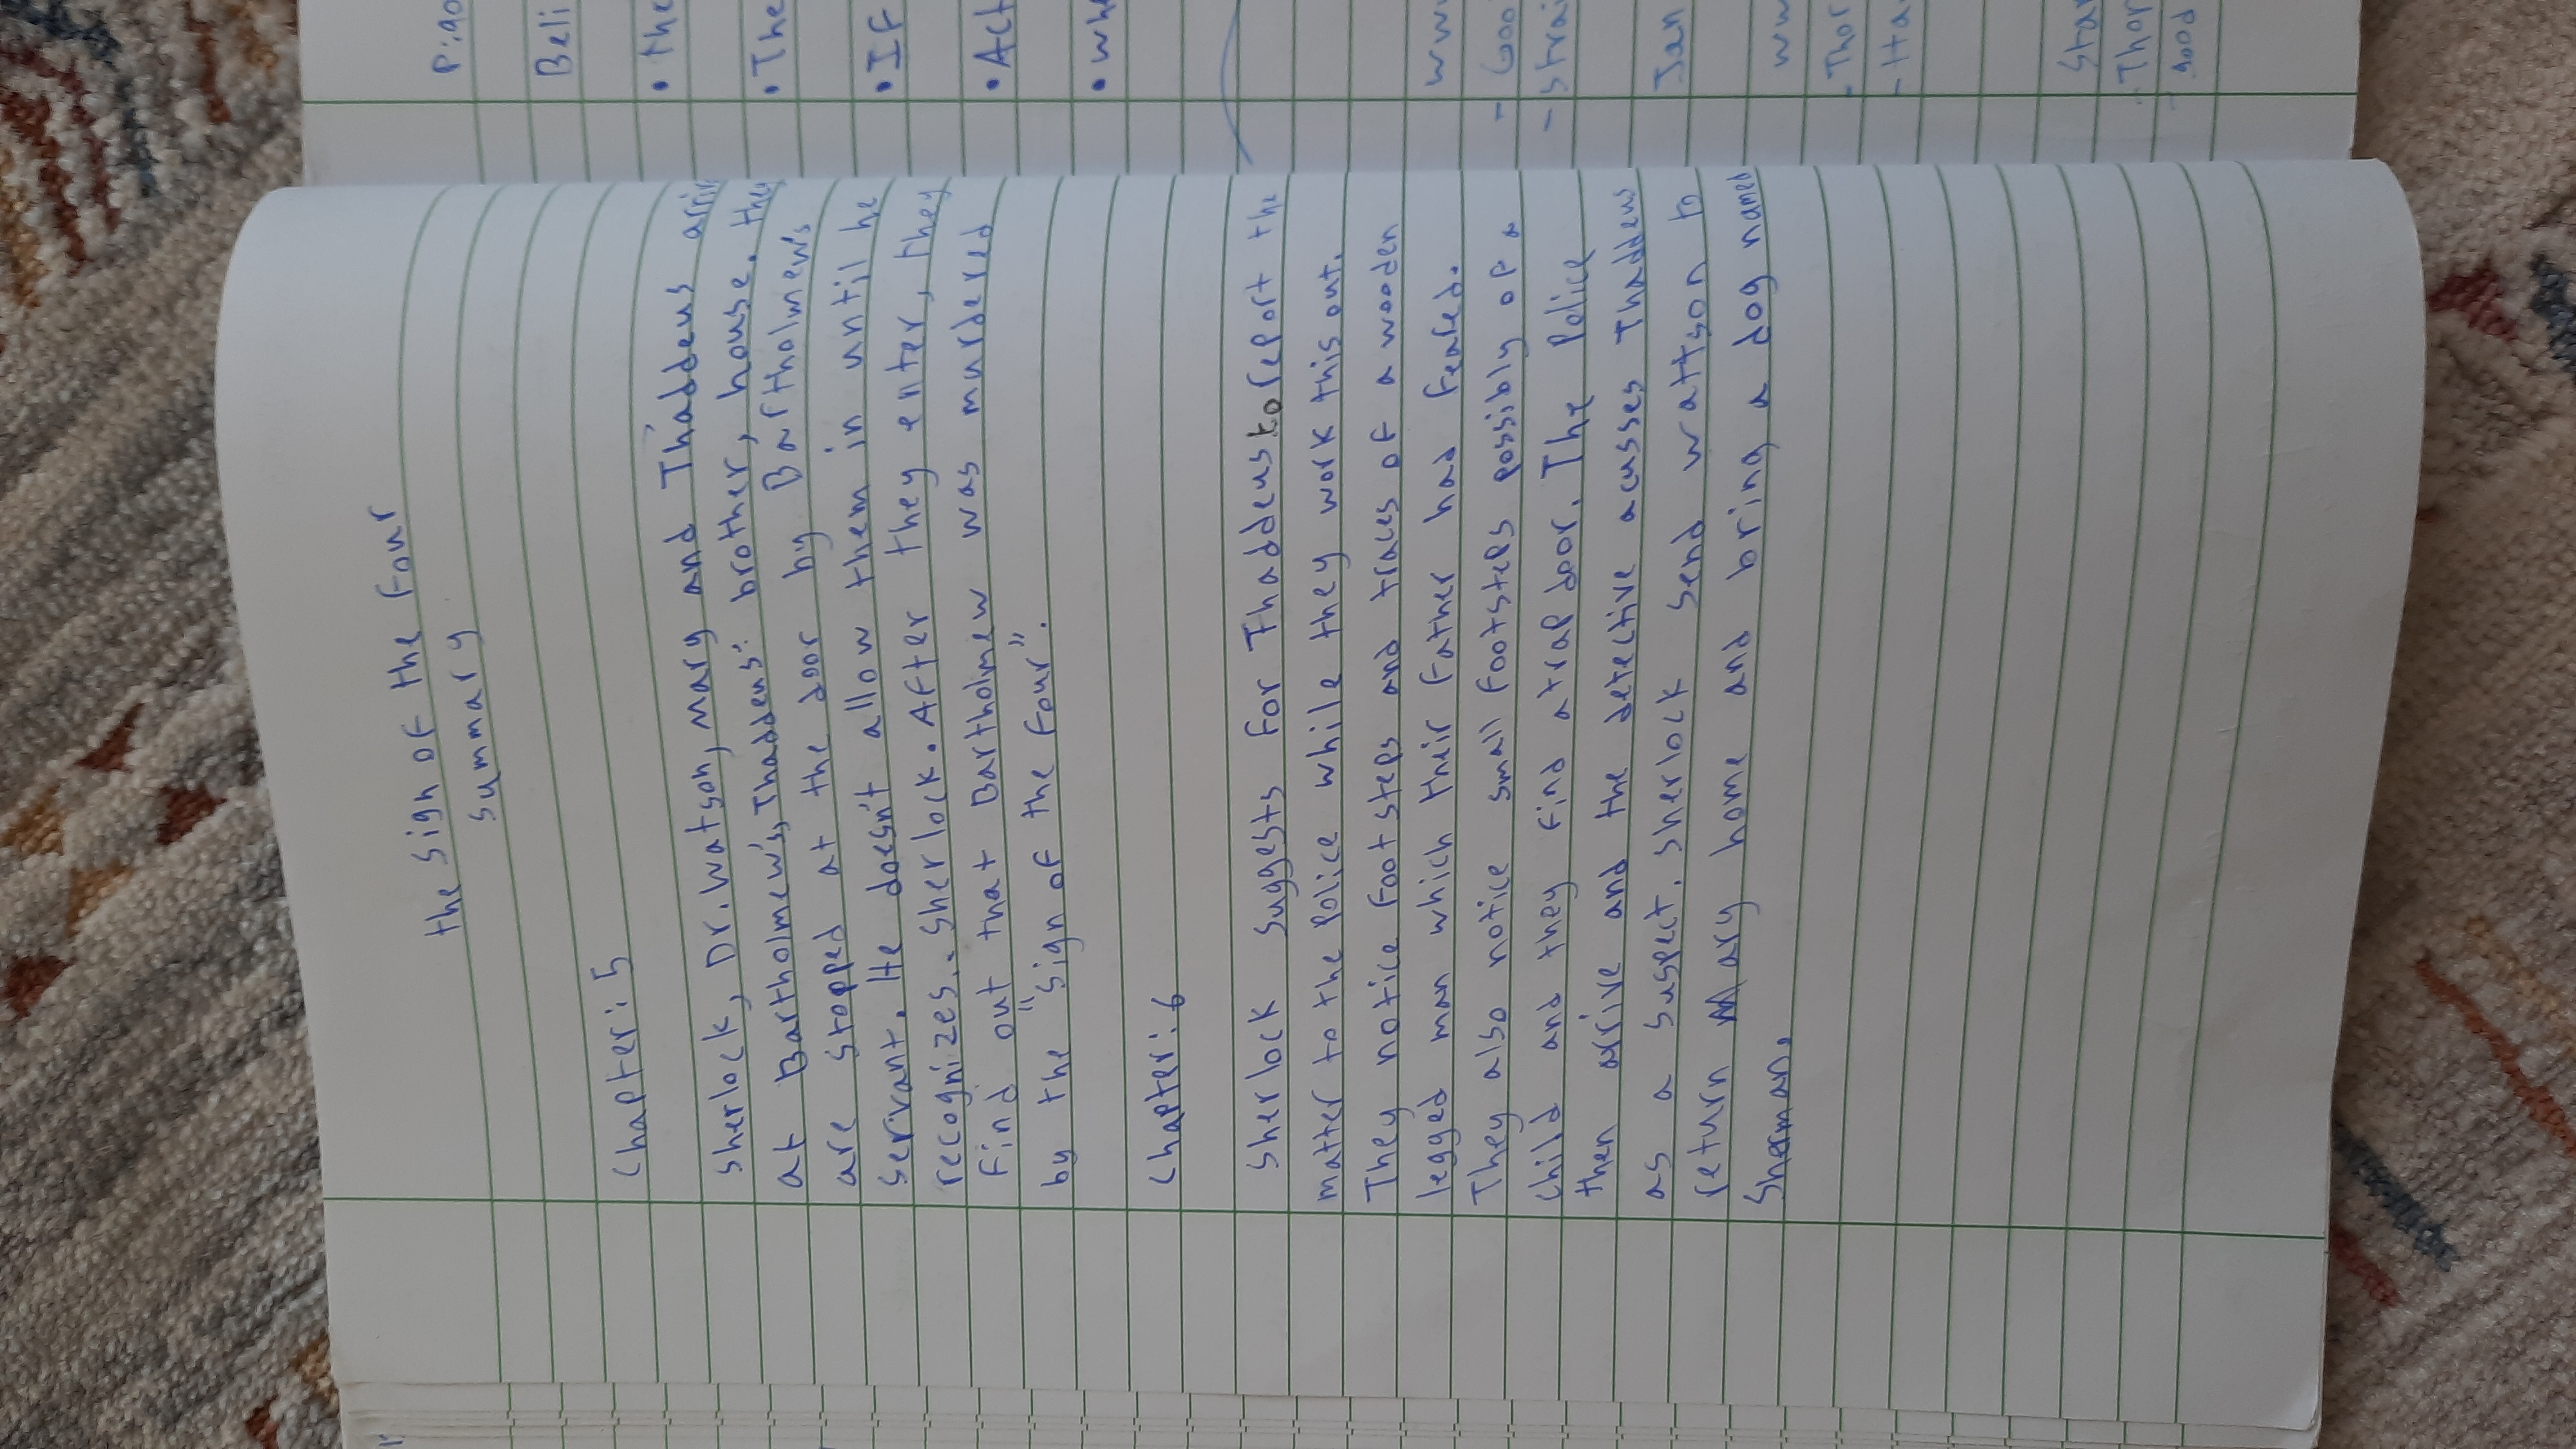 the Sign of the Four
Summary
Chapter: 5
Sherlock, Dr. Watson, Mary and Thaddeus
at Bartholmew's, Thaddeus' brother, house. they
are stopped at the door by Bartholmew's
servant. He doesn't allow them in until he
recognizes.. Sherlock. After they enter, they
find out that Bartholmew was murdered
by the "Sign of the Four".
Chapter: 6
Sherlock suggests for Thaddeus to report the
matter to the police while they work this out.
They notice footsteps and traces of a wooden
legged man which their father had feared.
They also notice small footsteps possibly of a
child and they find a trap door. The Police
then arrive and the detective acusses Thaddeus
as a suspect. Sherlock send wattson to
return Mary home and bring a dog named
Sherman.
Beli
• the
• The
• If
• Act
• whe
www
- Goo
- Strai
Jan
ww
- Thor
- Ha
Star
Thor
good